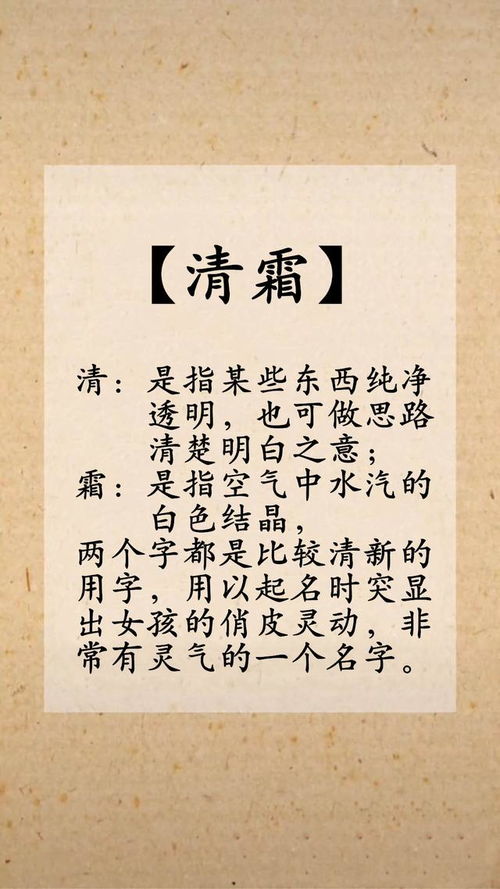 【清霜】
清：是指某些东西纯净
透明，也可做思路
清楚明白之意；
霜：是指空气中水汽的
白色结晶，
两个字都是比较清新的
用字，用以起名时突显
出女孩的俏皮灵动，非
常有灵气的一个名字。